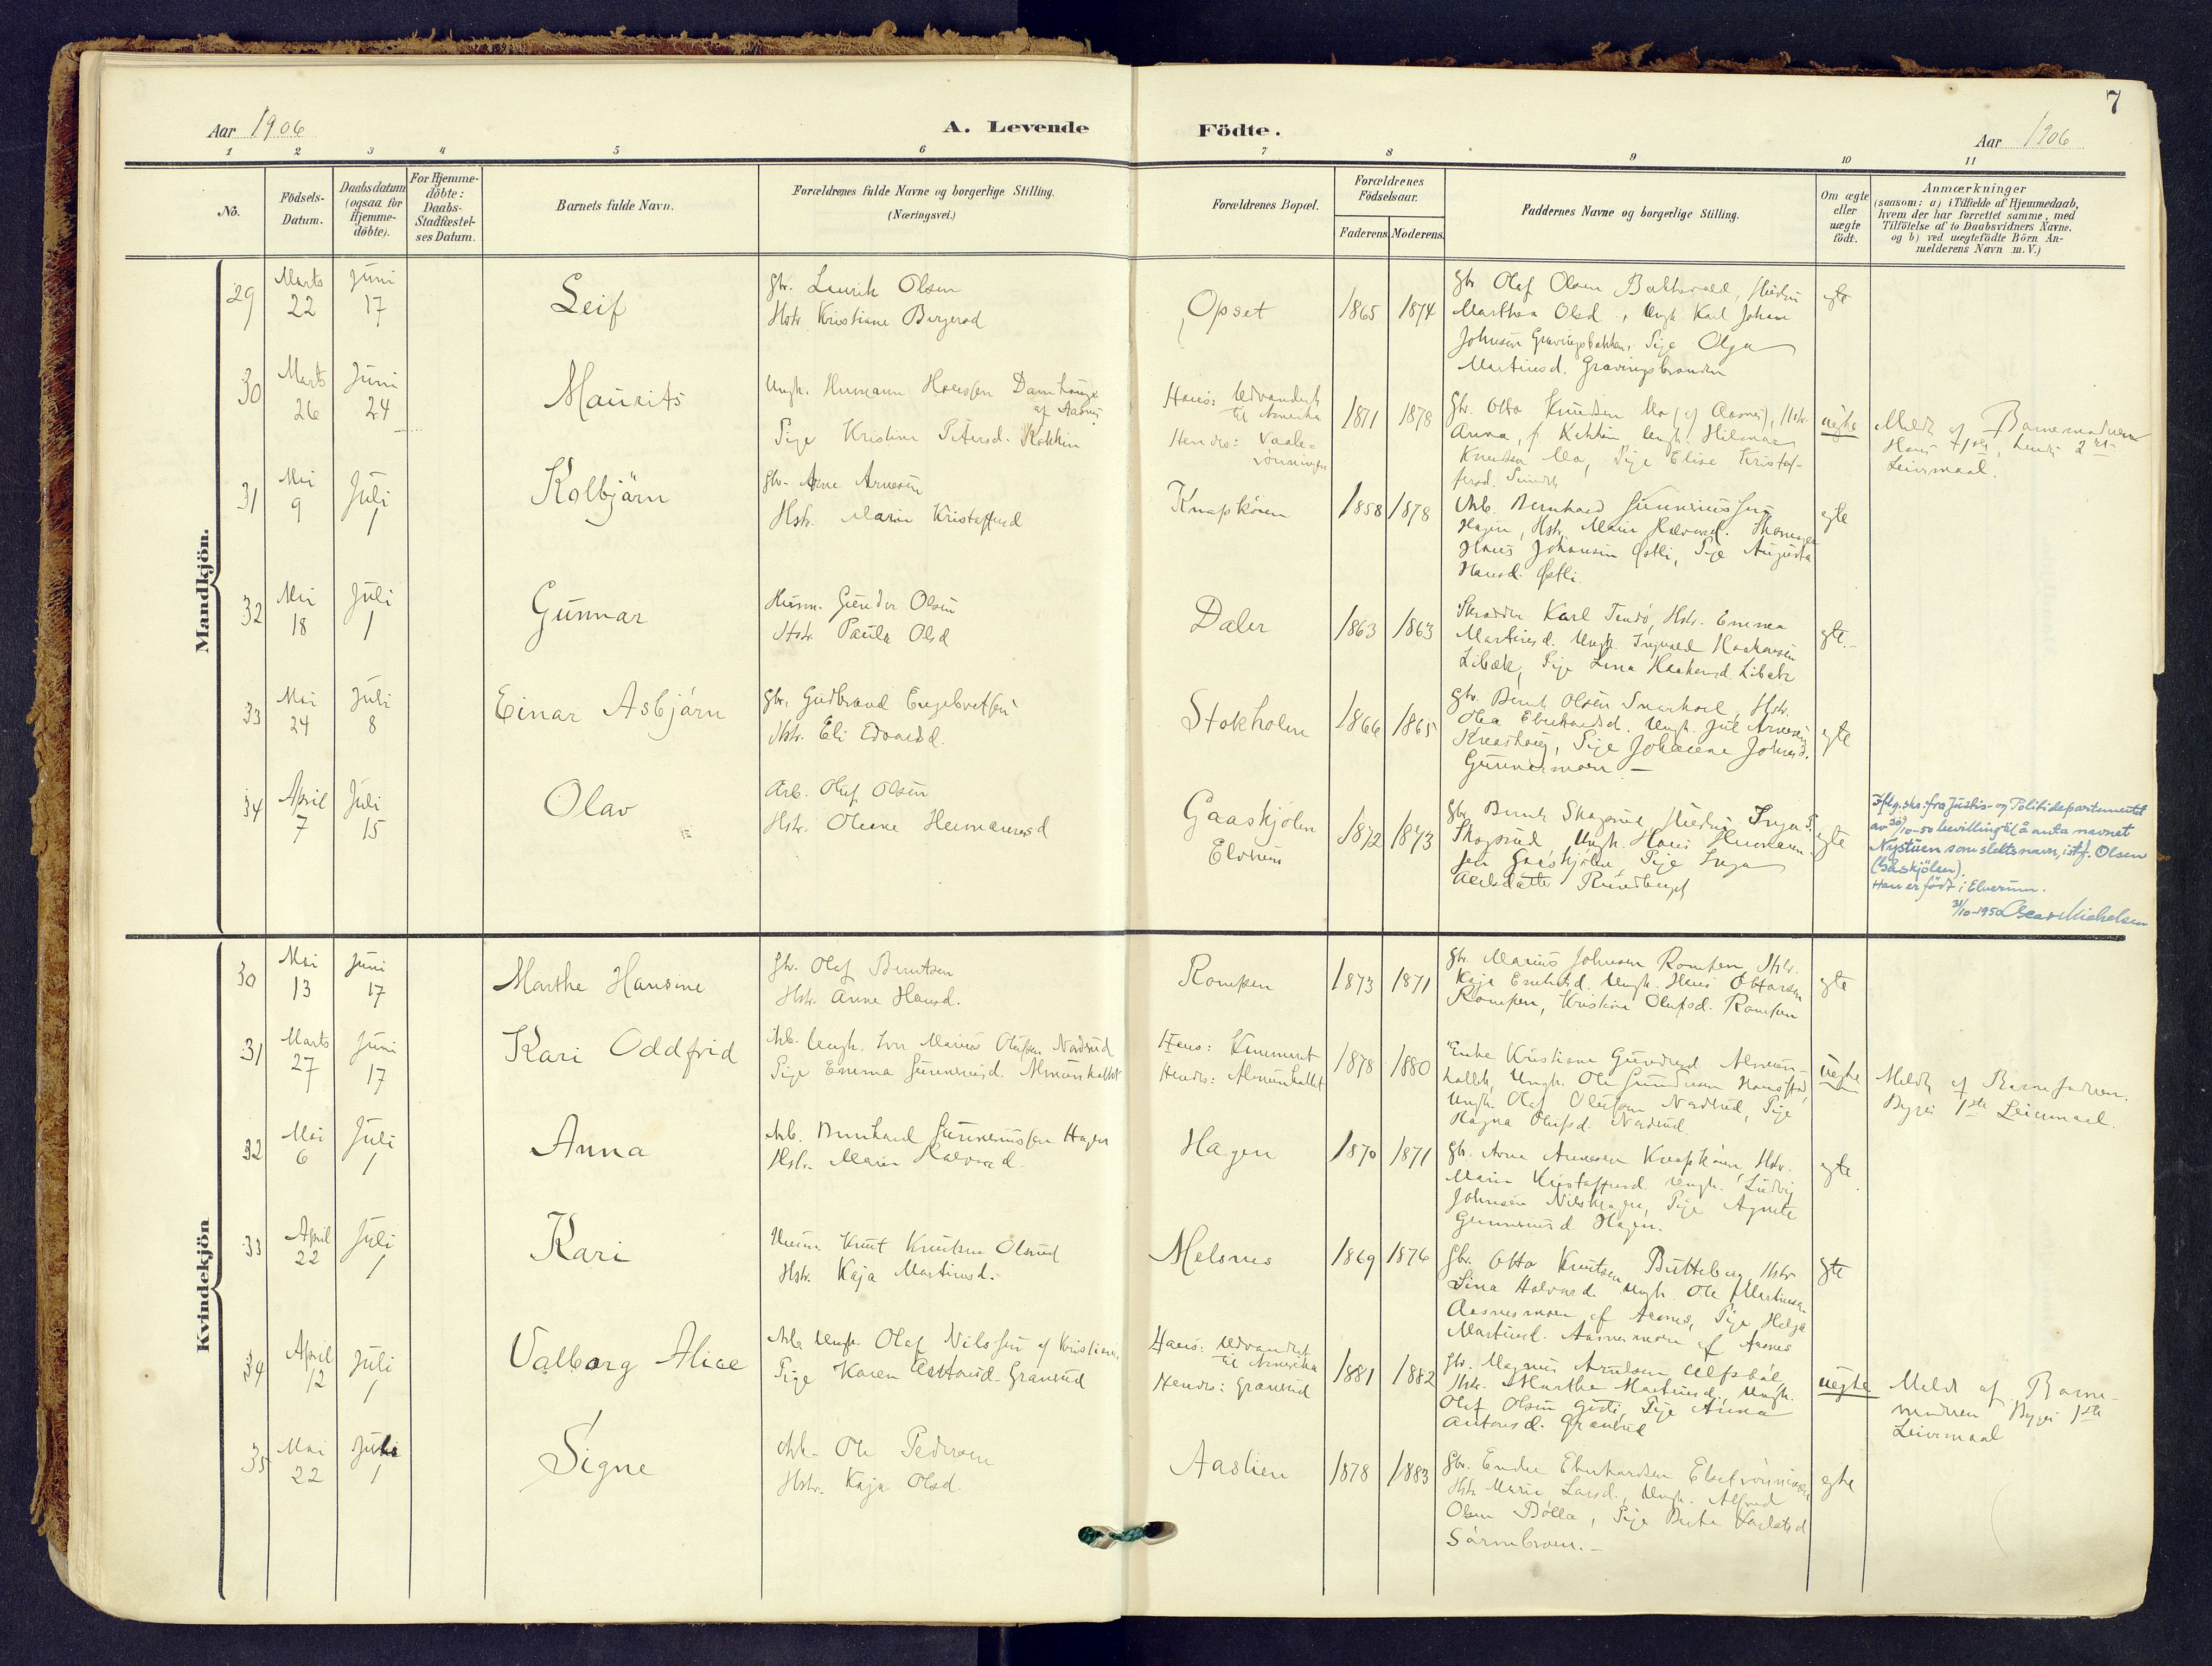 7
Aar 1906
A. Levende
Födte.
Aar 1906
1 2 3 4 5 6 7 8 9 10 11
No.
Födsels-
Datum.
Daabsdatum
(ogsaa for
Hjemme-
döbte).
For Hjemme-
döbte:
Daabs-
Stadfæstel-
ses Datum.
Barnets fulde Navn.
Forældrenes fulde Navne og borgerlige Stilling.
(Næringsvei.)
Forældrenes Bopæl.
Forældrenes
Födselsaar.
Faderens.
Moderens.
Faddernes Navne og borgerlige Stilling.
Om ægte
eller
uægte
födt.
Anmærkninger
(saasom: a) i Tilfælde af Hjemmedaab,
hvem der har forrettet samme, med
Tilföielse af to Daabsvidners Navne,
og b) ved uægtefödte Börn An-
melderens Navn m. V.)
Mandkjön.
29
Marts
22
Juni
17
Leif
Gbr. Laurik Olsen
Hstr. Kristiane Bergerød
Opset
1865
1874
Gbr Olaf Olsen
Marthea Olsd., Ungk. Karl Johan
Johnsen Gravingsbakken, Pige Olga
Martinsd. Gravingsbraaten
egte
30
Marts
26
Juni
24
Maurits
Ungk. Hermann Hansen
af Aasnes
Pige Kristine Petersd. Kokkin
Hans: Udvandret
til Amerika
Hendes: Vaale-
rönningen
1871
1878
Gbr. Otto Knudsen Mo (af Aasnes), Hstr.
Anna, Ungk. Hilmar
Knudsen Mo, Pige Elise Kristof-
fersd.
uegte
Meldt af Barnemoderen
Hans 1ste, hendes 2det
Leiermaal.
31
Mai
9
Juli
1
Kolbjörn
Gbr. Arne Arnesen
Hstr. Marie Kristoffersd
Knapköien
1858
1878
Arb. Bernhard Gunneriussen
Hagen, Hstr. Marie Halvorsd.
Hans Johansen Østli, Pige Augusta
Hansd. Østli.
egte
32
Mai
18
Juli
1
Gunnar
Husm. Gunder Olsen
Hstr. Paula Olsd
Daler
1863
1863
Skrædder Karl Hstr. Emma
Martinsd. Ungk. Ingvald Haakensen
Libæk, Pige Lina Haakensd. Libæk
egte.-
33
Mai
24
Juli
8
Einar Asbjörn
Gbr. Gudbrand Engebretsen
Hstr. Eli Edvardsd.
Stokholen
1866
1865
Gbr. Bernt Olsen Snarhoel, Hstr.
Olea Eberhardsd. Ungk. Jul Arnesen
Pige Johanne Johnsd.
Gunnersmoen -
egte
34
April
7
Juli
15
Olav
Arb. Oluf Olsen
Hstr. Oleane Hermansensd
Gaaskjölen
Elverum
1872
1873
Gbr. Bernt Skogsrud, Hustru Inga P.
Skogsrud, Ungk. Hans Herman-
sen Gaaskjölen, Pige Inga
Axelsdatter Rundberget
egte
Iflg. skr. fra Justis- og Politidepartementet
av 30/10-50 bevilling til å anta navnet
Nystuen som slektsnavn, istf. Olsen
(Gåskjölen).
Han er född i Elverum.
31/10-1950 Oscar Michelsen
Kvindekjön
30
Mai
13
Juni
17
Marthe Hansine
Gbr. Olaf Berntsen
Hstr. Anne Hansd.
Rompen
1873
1871
Gbr. Marius Johnsen Rompen, Hstr.
Kaja Ungk. Hans Ottarsen
Rompen, Kristine Olufsd. Rompen
egte
31
Marts
27
Juni
17
Kari Oddfrid
Arb. Ungk. Iver Marius Olufsen Nordsud
Pige Emma Gunneriusd. Almunhallet
Hans:
Hendes: Almunhallet
1878
1880
Enke Kristiane Gundersd Almun-
hallet, Ungk. Ole Gundersen
Ungk. Olaf Olufsen Nordsud, Pige
Magna Olufsd. Nordsud.
uegte
Meldt af Barnefaderen.
Begges 1ste Leiermaal.
32
Mai
6
Juli
1
Anna
Arb. Bernhard Gunneriussen Hagen
Hstr. Marie Halvorsd.
Hagen
1870
1871
Gbr. Arne Arnesen Knapköien Hstr.
Marie Kristoffersd. Ungk. Ludvig
Johnsen Pige Agnete
Gunneriusd Hagen.
egte.
33
April
22
Juli
1
Kari
Husm. Knut Knutsen Olsrud
Hstr. Kaja Martinsd.
Melsnes
1869
1876
Gbr. Otto Knutsen Butteberg Hstr
Lina Halvorsd. Ungk. Ole Martinsen
Aasnesmoen af Aasnes, Pige Helga
Martinsd. Aasnesmoen af Aasnes
egte
34
April
12
Juli
1
Valborg Alice
Arb. Ungk. Olaf Nilssen af Kristiania
Pige Karen Granerud
Hans: Udvandret
til Amerika
Hendes: Granerud
1881
1882
Gbr. Magnus Arnesen
Hstr. Marthe Martinsd., Ungk.
Olaf Olsen Pige Anna
Antonsd. Granerud
uegte
Meldt af Barne-
moderen Begges 1ste
Leiermaal
35
Mai
22
Juli
1
Signe
Arb. Ole Pedersen
Hstr. Kaja Olsd.
Aaslien
1878
1883
Gbr. Endre Eberhardsen
Hstr. Marie Larsd., Ungk. Alfred
Olsen Bölla, Pige Berta
egte